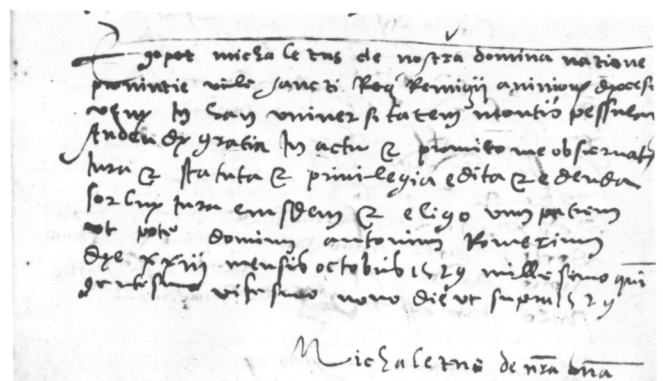 Ego pet michaletus de nostra domina natione
provintie ville sancti Req Remigii avinionx diocesi
venx In han universitatem montis pessulan
studendi gratia In actu & promito me observat
Iura & statuta & privilegia edita & edenda
Iura eiusdem & eligo
dominum antonium Romerium
Die xxiii mensis octobris 1529 millesimo quin
gentesimo vitesimo nono die ut supra 1529
Michaletus de nra dna